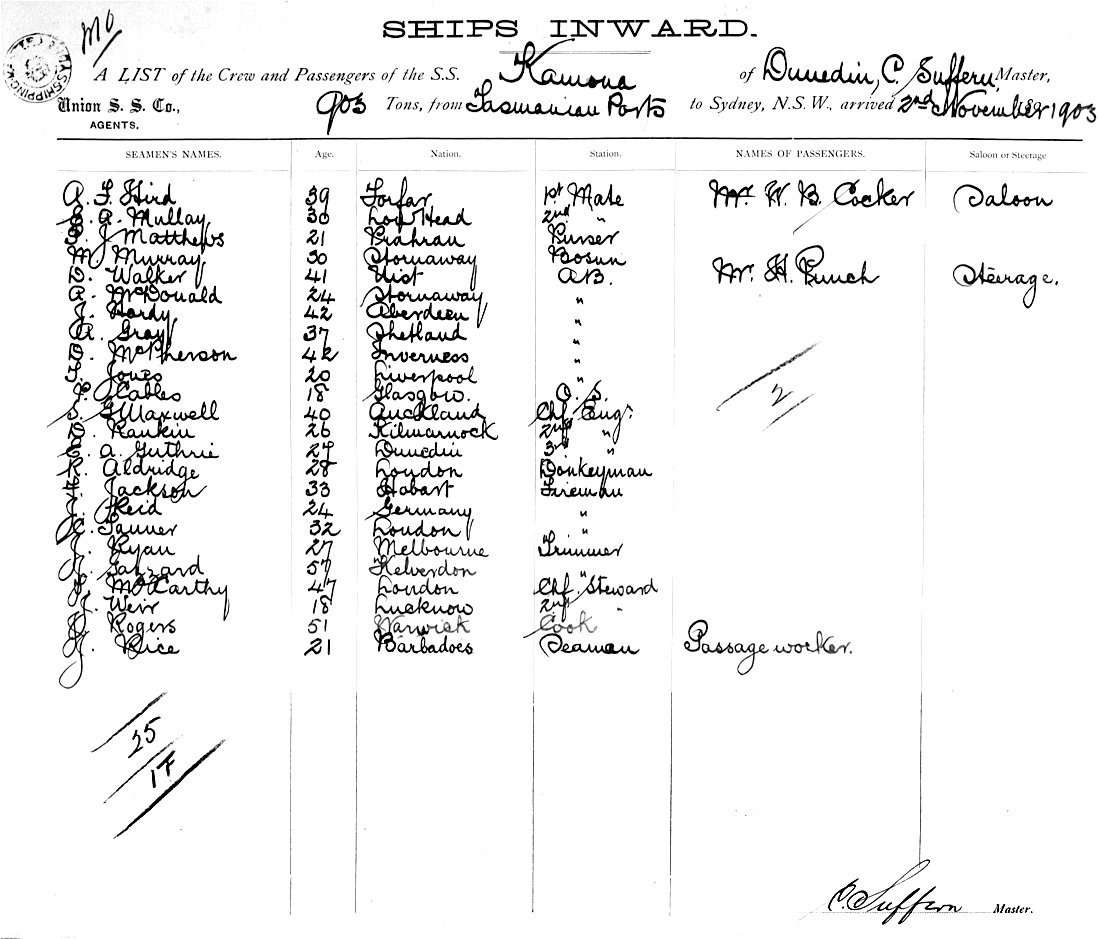 MO
SHIPS INWARD.
A LIST of the Crew and Passengers of the S.S. Kamona of Dunedin, C. Suffern, Master,
Union S. S. Co., AGENTS, 903 Tons, from Tasmanian Ports to Sydney, N.S.W., arrived 2nd November 1903
SEAMEN'S NAMES. Age. Nation. Station. NAMES OF PASSENGERS. Saloon or Steerage
A. F. Hird 39 Forfar 1st Mate Mr W. B. Cocker Saloon
E. A. Mullay 30 Low Head 2nd "
J Matthews 21 Prahran Purser
M Murray 30 Stornaway Bosun
D. Walker 41 Uist A.B. Mr. H. Punch Steerage.
A. McDonald 24 Stornaway "
J. Hardy 42 Aberdeen "
A. Gray 37 Shetland "
D. McPherson 42 Inverness "
T. Jones 20 Liverpool "
P. Cables 18 Glasgow. O.S.
S. G Maxwell 40 Auckland Chf Engr
D. Rankin 26 Kilmarnock 2nd "
E. A. Guthrie 27 Dunedin 3rd "
R. Aldridge 28 London Donkeyman
Jackson 33 Hobart Fireman
J. Reid 24 Germany "
Tanner 32 London "
J. Ryan 27 Melbourne Trimmer
J. Gazzard 57 Kelverdon "
McCarthy 47 London Chf Steward
J. Weir 18 Lucknow 2nd "
Rogers 51 Warwick Cook
J. Rice 21 Barbadoes Seaman Passage worker.
2
25
1F
C. Suffern Master.